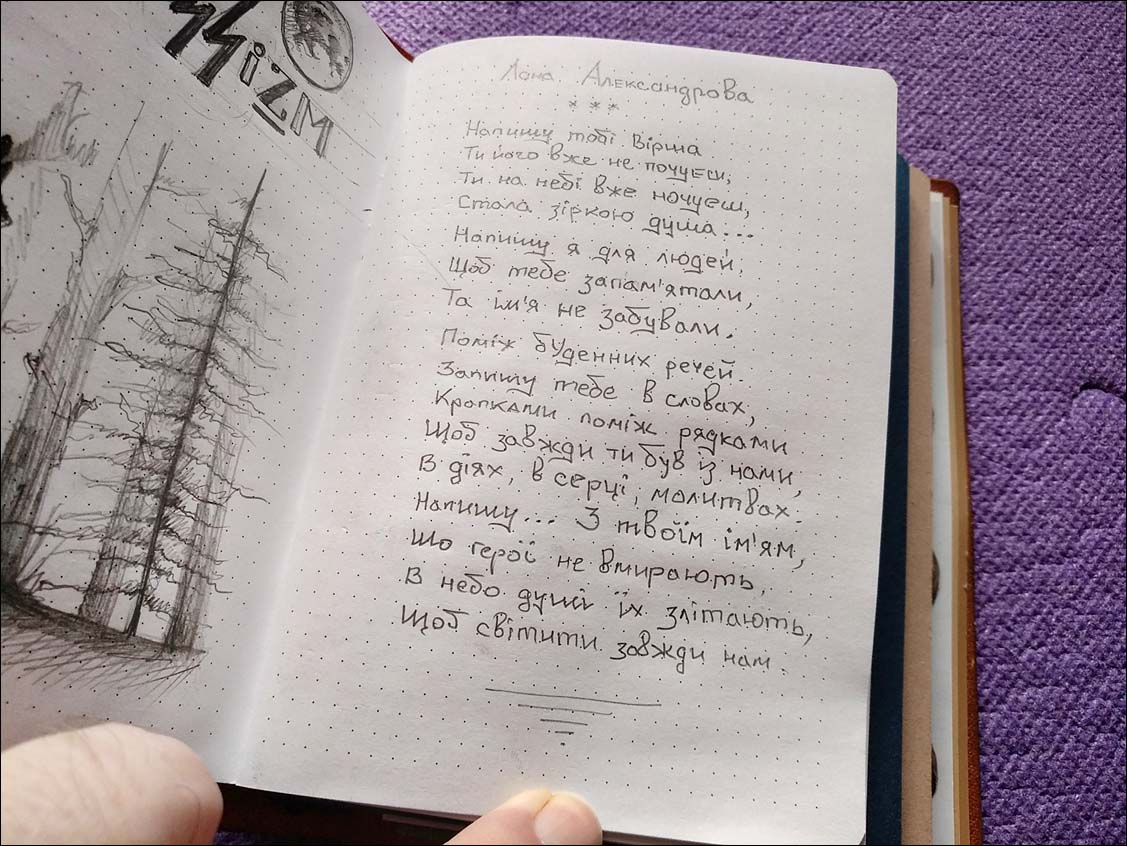 Лана Александрова
***
Напишу тобі вірша
Ти його вже не почуєш,
Ти на небі вже ночуєш,
Стала зіркою душа...
Напишу я для людей,
Щоб тебе запам'ятали,
Та ім'я не забували,
Поміж буденних речей.
Запишу тебе в словах,
Крапками поміж рядками
Щоб завжди ти був із нами,
В діях, в серці, молитвах.
Напишу... З твоїм ім'ям,
Що герої не вмирають,
В небо душі їх злітають,
Щоб світити завжди нам.